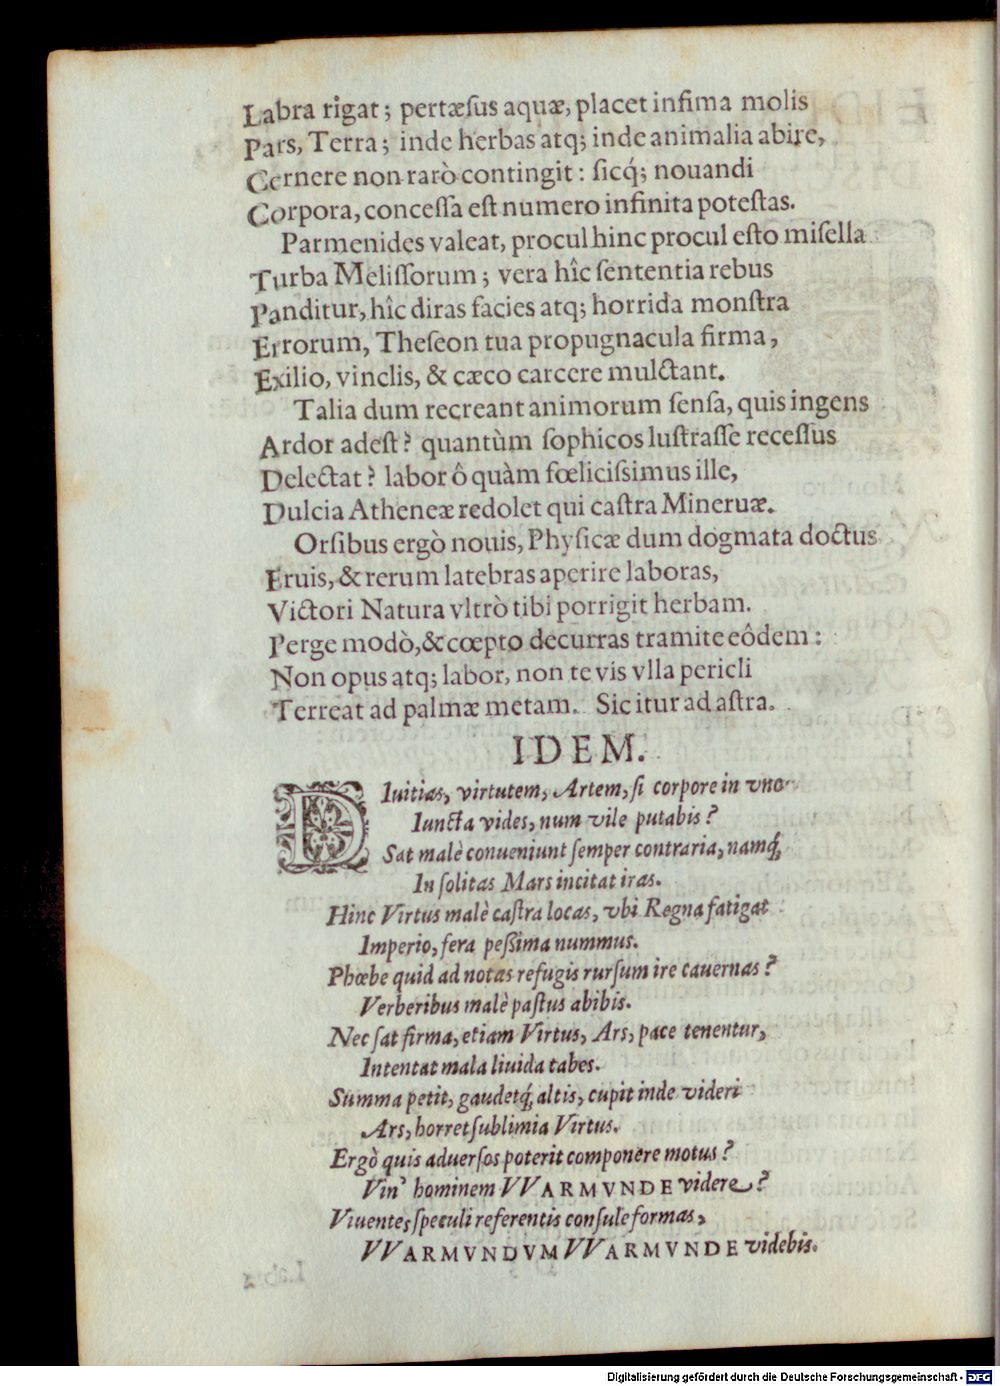 Labra rigat; pertæſus aquæ, placet infima molis
Pars, Terra; inde herbas atq; inde animalia abire,
Cernere non rarò contingit: ſicq́; nouandi
Corpora, conceſſa eſt numero infinita poteſtas.
Parmenides valeat, procul hinc procul eſto miſella
Turba Meliſſorum; vera hîc ſententia rebus
Panditur, hîc diras facies atq; horrida monſtra
Errorum, Theſeon tua propugnacula firma,
Exilio, vinclis, & cæco carcere mulctant.
Talia dum recreant animorum ſenſa, quis ingens
Ardor adeſt? quantùm ſophicos luſtraſſe receſſus
Delectat? labor ô quàm fœliciſsimus ille,
Dulcia Atheneæ redolet qui caſtra Mineruæ.
Orſibus ergò nouis, Phyſicæ dum dogmata doctus
Eruis, & rerum latebras aperire laboras,
Victori Natura vltrò tibi porrigit herbam.
Perge modò, & cœpto decurras tramite eôdem:
Non opus atq; labor, non te vis vlla pericli
Terreat ad palmæ metam. Sic itur ad aſtra.
IDEM.
DIuitias, virtutem, Artem, ſi corpore in vno
Iuncta vides, num vile putabis?
Sat malè conueniunt ſemper contraria, namq́;
In ſolitas Mars incitat iras.
Hinc Virtus malè caſtra locas, vbi Regna fatigat
Imperio, fera peßima nummus.
Phœbe quid ad notas refugis rurſum ire cauernas?
Verberibus malè paſtus abibis.
Nec ſat firma, etiam Virtus, Ars, pace tenentur,
Intentat mala liuida tabes.
Summa petit, gaudetq́; altis, cupit inde videri
Ars, horret ſublimia Virtus.
Ergò quis aduerſos poterit componere motus?
Vin' hominem VVARMVNDE videre?
Viuentes ſpeculi referentis conſule formas,
VVARMVNDVM VVARMVNDE videbis.
Digitalisierung gefördert durch die Deutsche Forschungsgemeinschaft - DFG